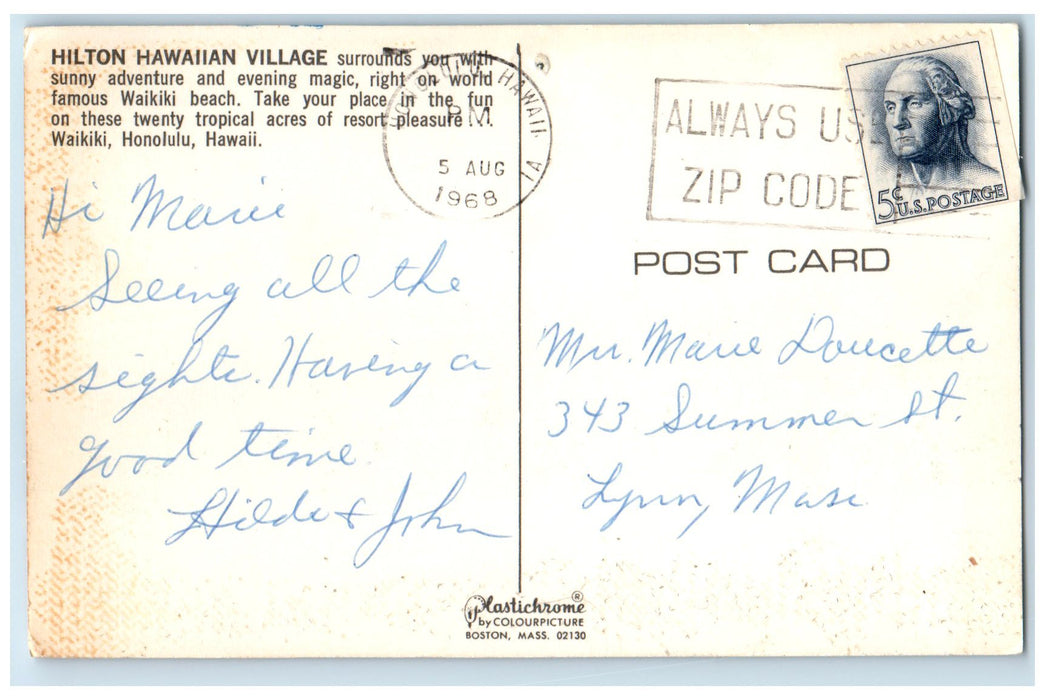 HILTON HAWAIIAN VILLAGE surrounds you with
sunny adventure and evening magic, right on world
famous Waikiki beach. Take your place in the fun
on these twenty tropical acres of resort pleasure . . .
Waikiki, Honolulu, Hawaii.
HONOLULU, HAWAII
PM
5 AUG
1968
1A
ALWAYS USE
ZIP CODE
5¢ U.S. POSTAGE
Hi Marie
Seeing all the
sights. Having a
good time.
Hilda & John
POST CARD
Mrs. Marie Doucette
343 Summer St.
Lynn, Mass
Plastichrome ®
by COLOURPICTURE
BOSTON, MASS. 02130